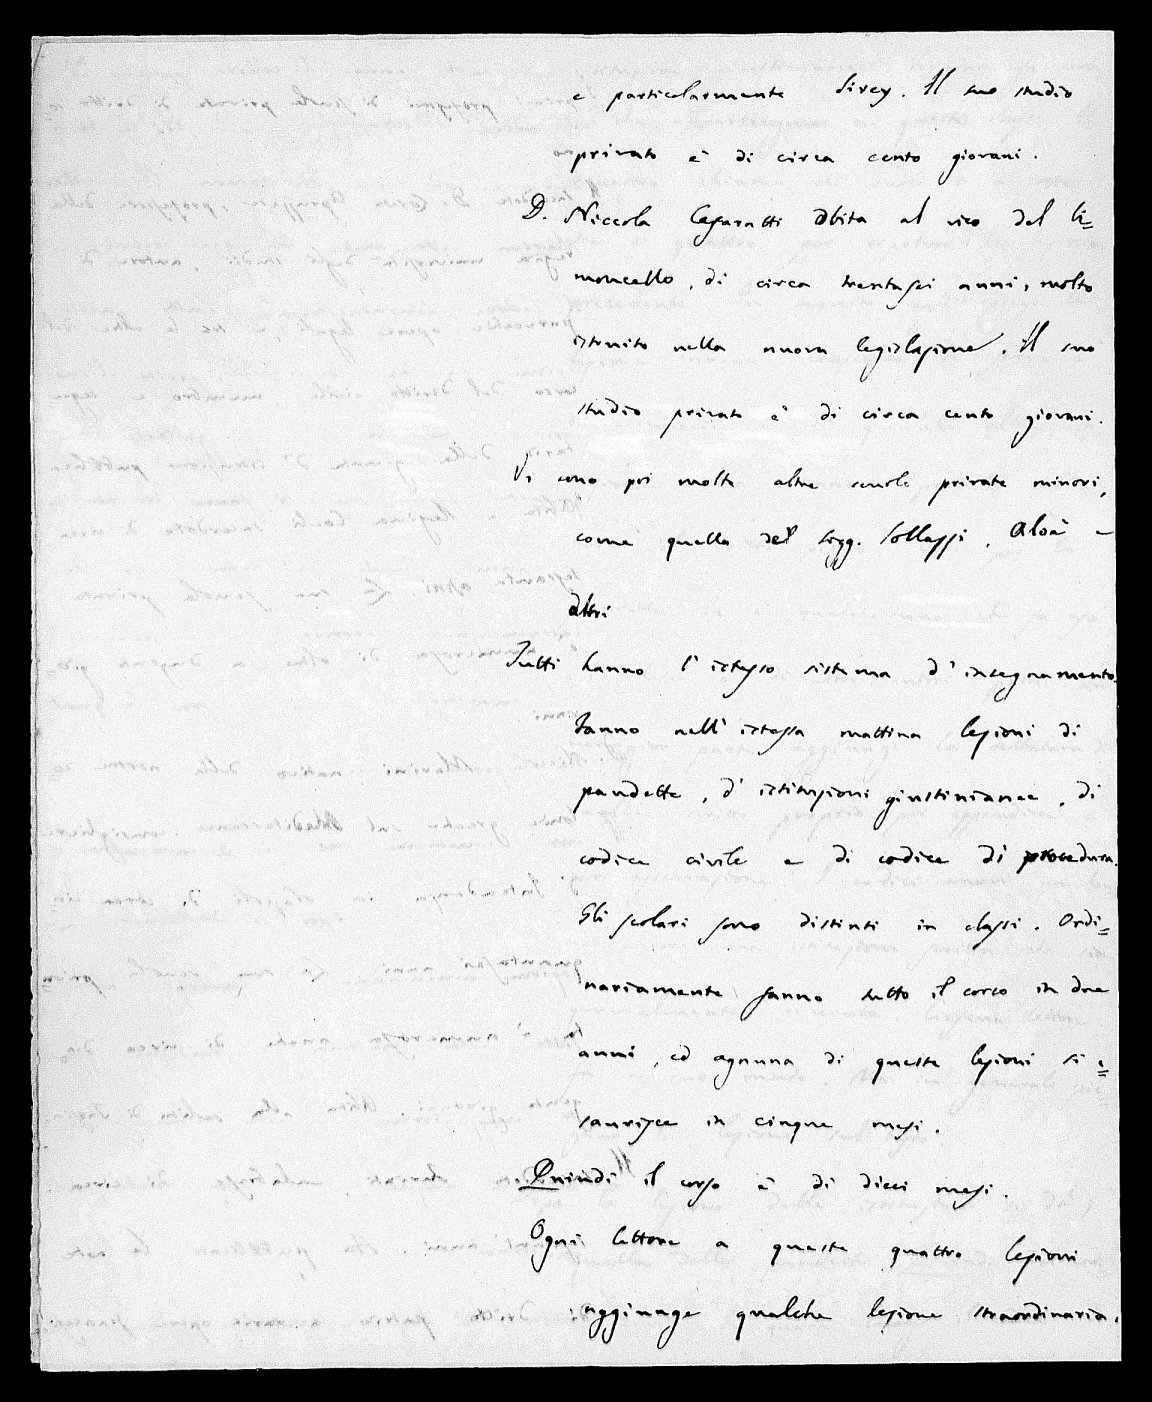 e particolarmente Sirey. Il suo studio
privato è di circa cento giovani.
D. Niccola Cafaratti abita al vico del Li=
moncello, di circa trentasei anni, molto
istruito nella nuova legislazione. Il suo
studio privato è di circa cento giovani.
Vi sono poi molte altre scuole private minori,
come quella del sigg. Sollazzi, Aloà e
altri
Tutti hanno l'istesso sistema d'insegnamento.
Fanno nell'istessa mattina lezioni di
pandette, d'istituzioni giustinianee, di
codice civile e di codice di procedura.
Gli scolari sono distinti in classi. Ordi=
nariamente fanno tutto il corso in due
anni, ed ognuna di queste lezioni si e=
saurisce in cinque mesi.
Quindi il corso è di dieci mesi.
Ogni lettore a queste quattro lezioni
aggiunge qualche lezione straordinaria.